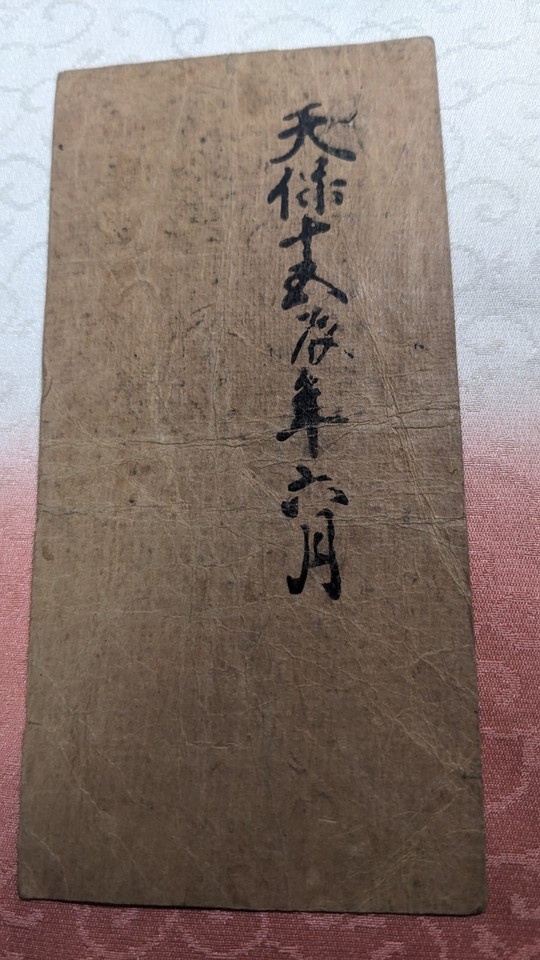 天保十五辰年六月